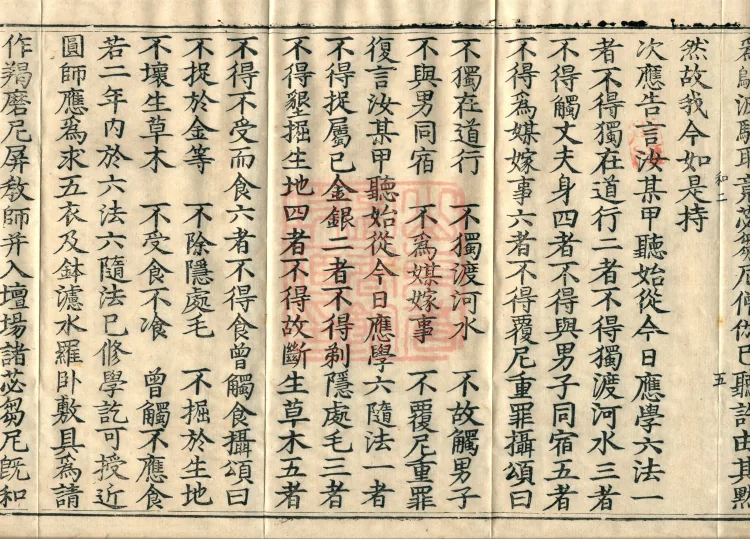 爲鄔波馱耶竟苾芻尼僧伽已聽許由其默
和二
五
然故我今如是持
次應告言汝某甲聽始從今日應學六法一
者不得獨在道行二者不得獨渡河水三者
不得觸丈夫身四者不得與男子同宿五者
不得爲媒嫁事六者不得覆尼重罪攝頌曰
不獨在道行　不獨渡河水　不故觸男子
不與男同宿　不爲媒嫁事　不覆尼重罪
復言汝某甲聽始從今日應學六隨法一者
不得捉屬己金銀二者不得剃隱處毛三者
不得墾掘生地四者不得故斷生草木五者
不得不受而食六者不得食曾觸食攝頌曰
不捉於金等　不除隱處毛　不掘於生地
不壞生草木　不受食不飡　曾觸不應食
若二年內於六法六隨法已修學訖可授近
圓師應爲求五衣及鉢濾水羅臥敷具爲請
作羯磨尼屏教師并入壇場諸苾芻尼既和